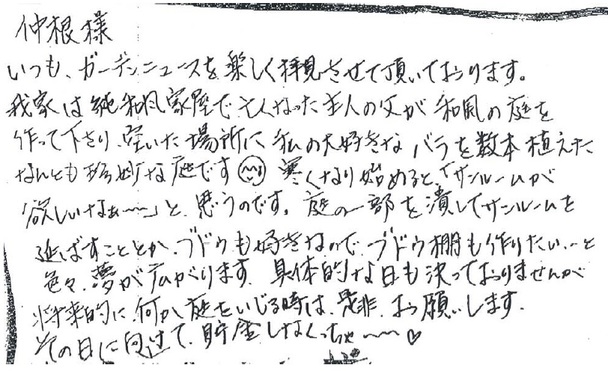 仲根様
いつも、ガーデンニュースを楽しく拝見させて頂いております。
我家は純和風家屋で亡くなった主人の父が和風の庭を
作って下さり、空いた場所に私の大好きなバラを数本植えた
なんとも珍妙な庭です 寒くなり始めると、「サンルームが
欲しいなぁ〜〜」と思うのです。庭の一部を潰してサンルームを
延ばすこととか、ブドウも好きなので、ブドウ棚も作りたい…と
色々、夢が広がります。具体的な日も決っておりませんが
将来的に何か庭をいじる時は、是非、お願いします。
その日に向けて、貯金しなくっちゃ〜〜♡